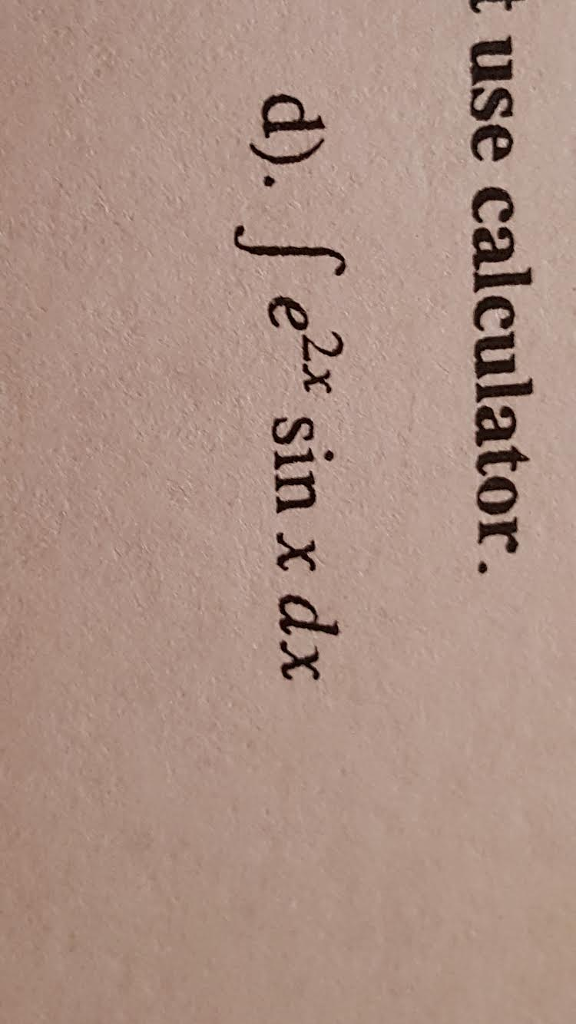 use calculator.
d). ∫ e²ˣ sin x dx